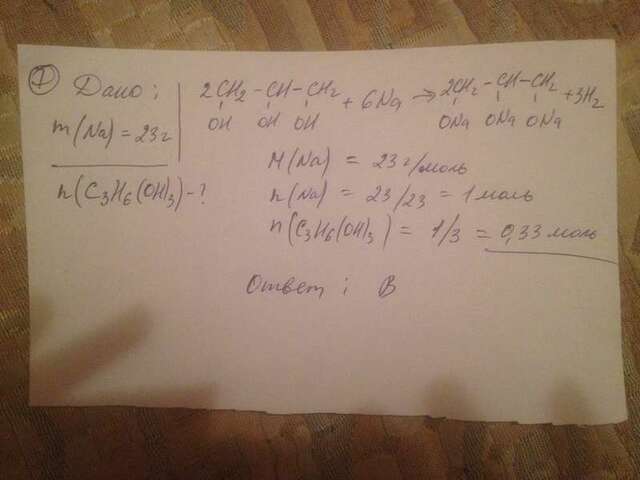 1 Дано:
m(Na) = 23г
n(C3H6(OH)3) - ?
2CH2 - CH - CH2 + 6Na → 2CH2 - CH - CH2 + 3H2
OH OH OH ONa ONa ONa
M(Na) = 23г/моль
n(Na) = 23/23 = 1 моль
n(C3H6(OH)3) = 1/3 = 0,33 моль
Ответ: В